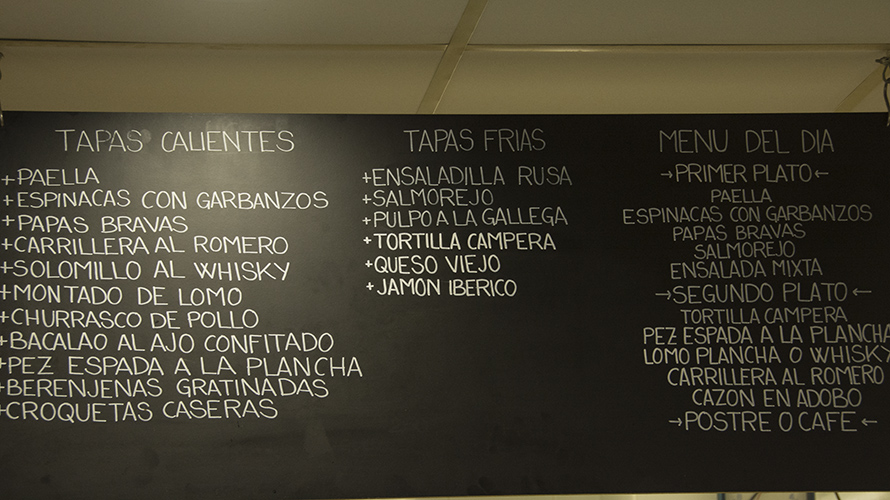 TAPAS CALIENTES
+PAELLA
+ESPINACAS CON GARBANZOS
+PAPAS BRAVAS
+CARRILLERA AL ROMERO
+SOLOMILLO AL WHISKY
+MONTADO DE LOMO
+CHURRASCO DE POLLO
+BACALAO AL AJO CONFITADO
+PEZ ESPADA A LA PLANCHA
+BERENJENAS GRATINADAS
+CROQUETAS CASERAS
TAPAS FRIAS
+ENSALADILLA RUSA
+SALMOREJO
+PULPO A LA GALLEGA
+TORTILLA CAMPERA
+QUESO VIEJO
+JAMÓN IBERICO
MENU DEL DIA
→PRIMER PLATO←
PAELLA
ESPINACAS CON GARBANZOS
PAPAS BRAVAS
SALMOREJO
ENSALADA MIXTA
→SEGUNDO PLATO←
TORTILLA CAMPERA
PEZ ESPADA A LA PLANCHA
LOMO PLANCHA O WHISKY
CARRILLERA AL ROMERO
CAZON EN ADOBO
→POSTRE O CAFE←